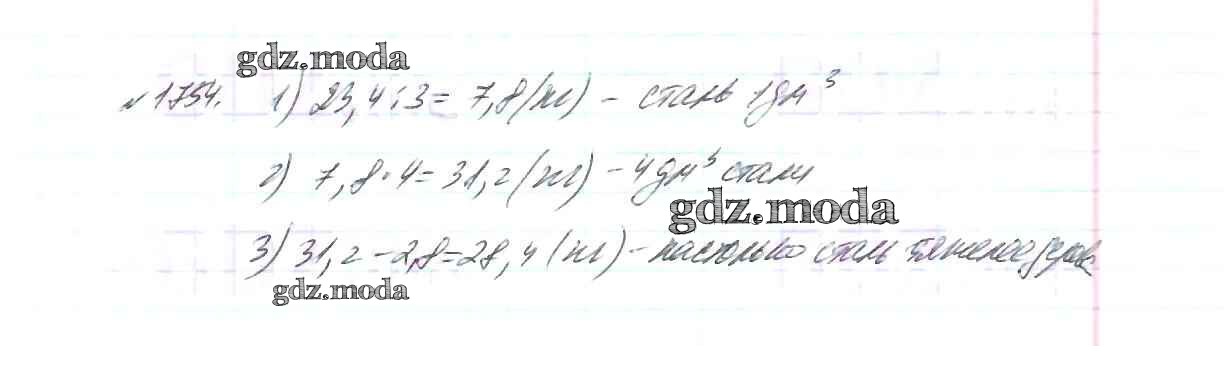 gdz.moda
№1754. 1) 23,4:3= 7,8(кг) – сталь 1дм³
2) 7,8·4=31,2(кг) – 4дм³ стали
gdz.moda
3) 31,2 – 2,8=28,4(кг) – настолько сталь тяжелее дерева
gdz.moda